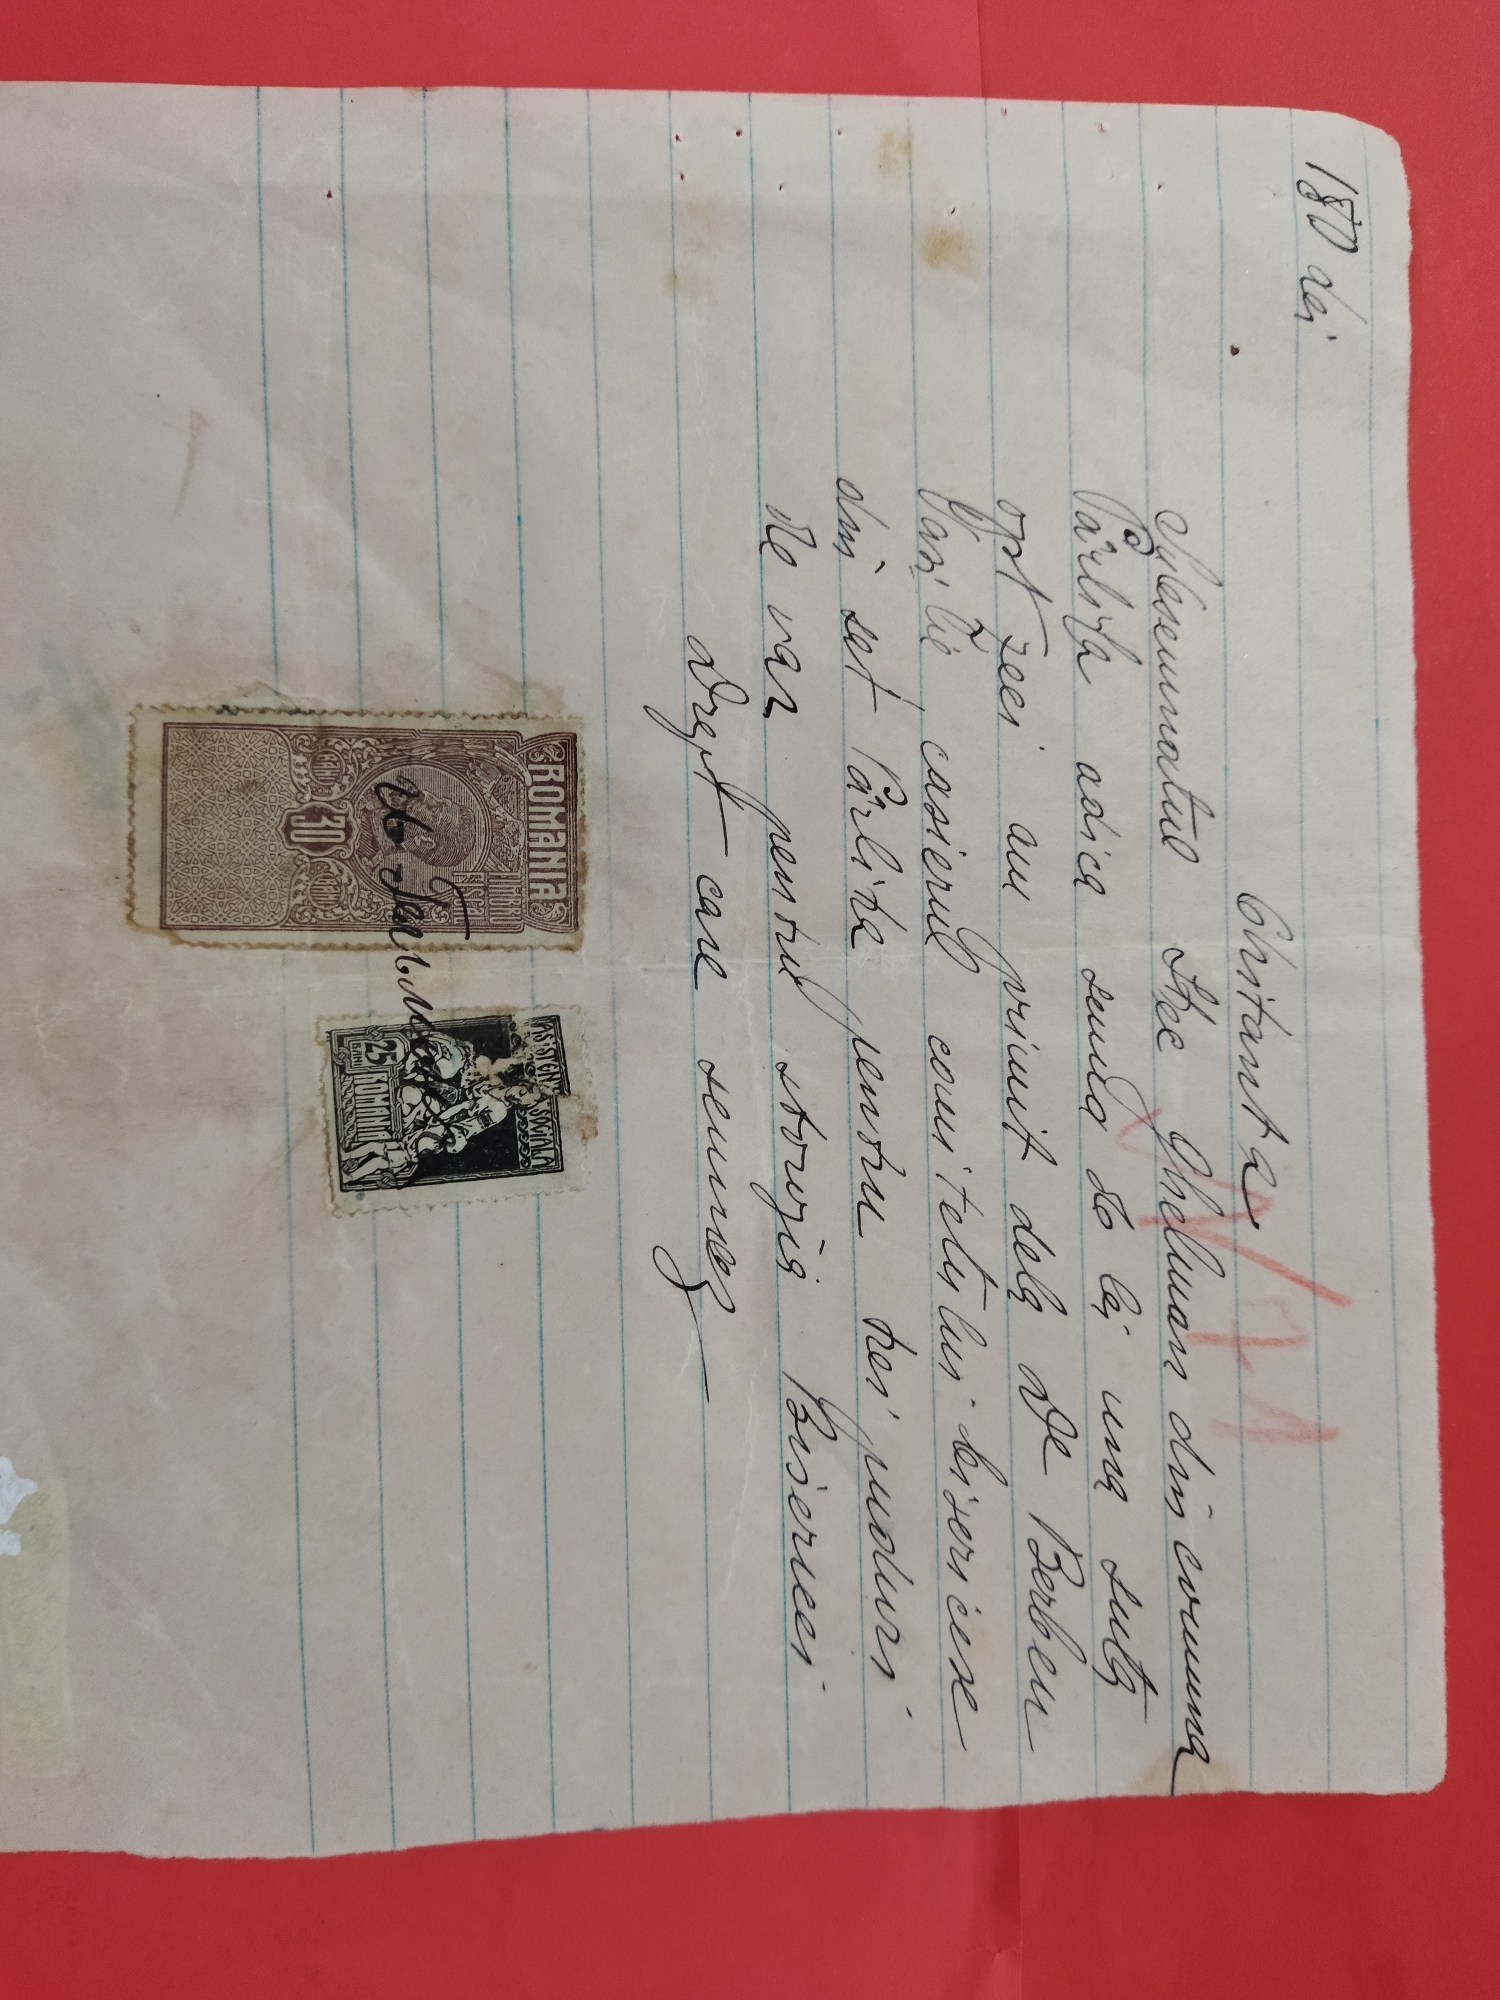 180 Lei
Chitanta
Subsemnatul Ilie Ghelman din comuna
Pârlița adica semnă do lei una sută
opt zeci am primit dela Dl Berbeu
Vasilie casierul comitetului bisericesc
din sat Pârlița pentru trei puduri
de var pentru storojia Bisericei
Drept care semnez
ROMANIA
TIMBRU FISCAL
30 BANI BANI
ASISTENȚA SOCIALA
25 BANI ROMANIA